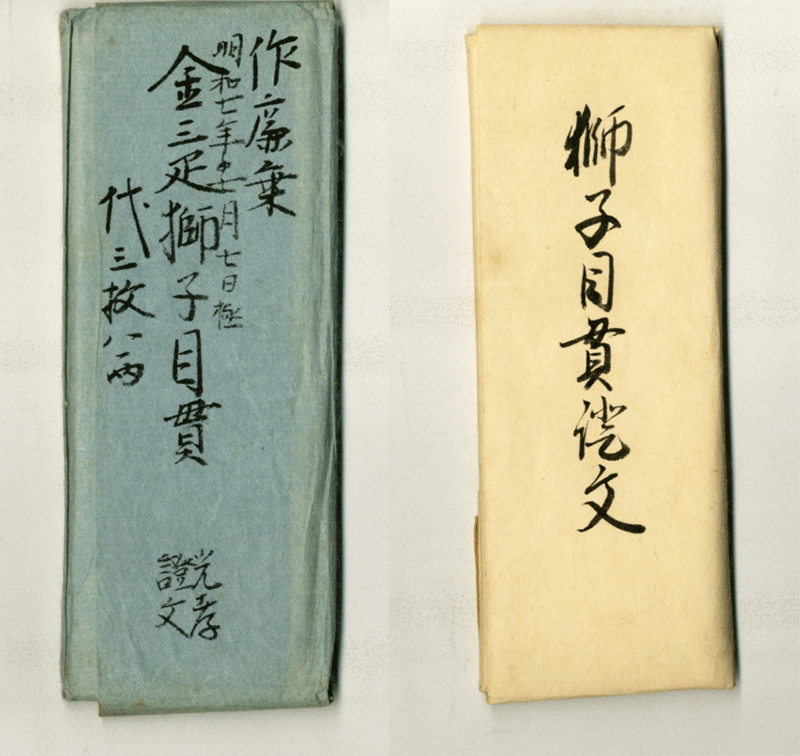 作廉乗
明和七年 月七日極
金三疋獅子目貫
代三枚八両
光孝
證文
獅子目貫證文